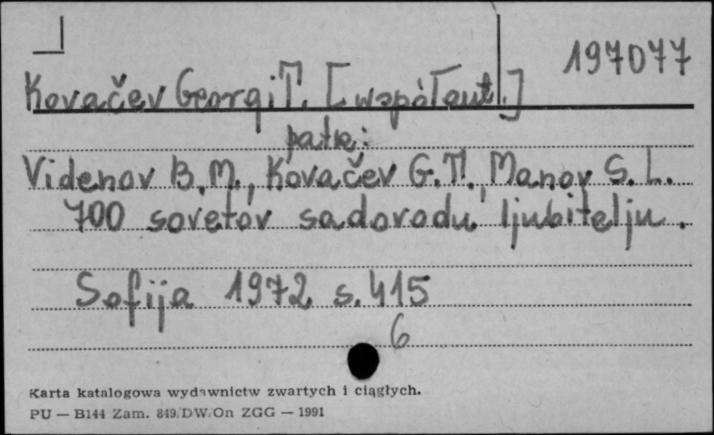 197077
Kovačev Georgi T. [współaut.]
patrz:
Videnov B.M., Kovačev G.T., Manov S.L.
700 sovetov sadovodu ljubitelju.
Sofija 1972 s. 415
6
Karta katalogowa wydawnictw zwartych i ciągłych.
PU — B144 Zam. 849/DW/On ZGG — 1991